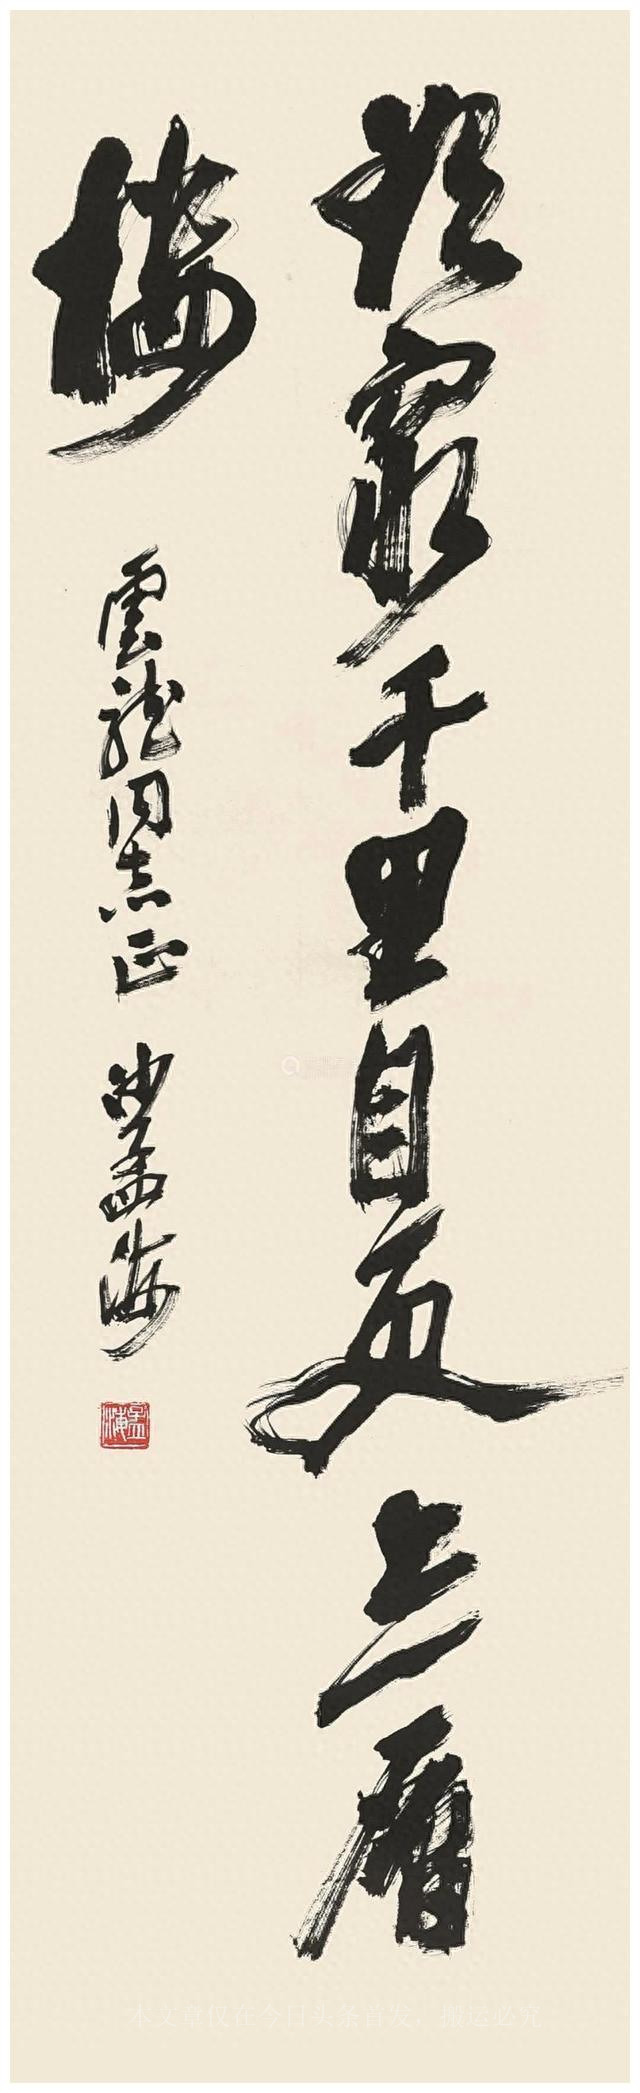 欲窮千里目更上一層
樓
雲龍同志正 沙孟海
孟海
本文章仅在今日头条首发，搬运必究